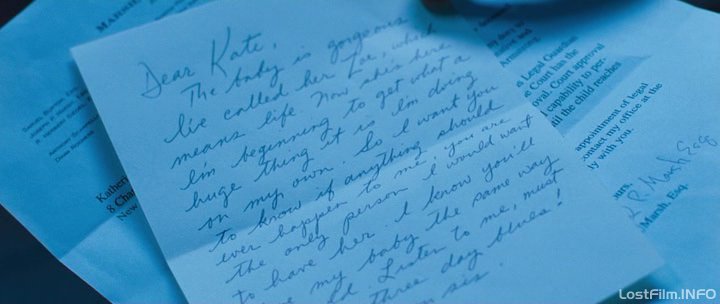 Dear Kate,
The baby is gorgeous
I've called her Zoe, which
means life. Now she's here
I'm beginning to get what a
huge thing it is I'm doing
on my own. So I want you
to know if anything should
ever happen to me, you are
the only person I would want
to have her. I know you'll
my baby the same way
Listen to me, must
three day blues!
sis.
Katheri
8 Cha
New
duty to
Legal Guardian
Court has the
oval. Court approval
capability to per-
the child reaches
appointment of legal
contact my office at the
ly with you.
ours,
Marsh Esq
Marsh, Esq.
LostFilm.INFO